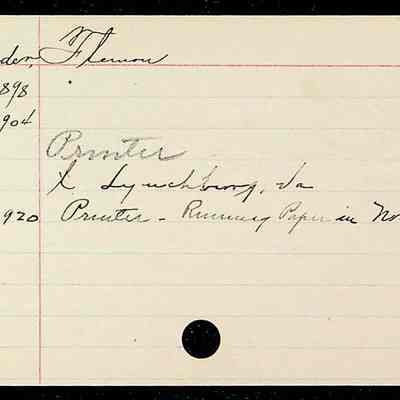 der, Flemon
898
904
Printer
L. Lynchburg, Va
920 Printer - Running Paper in No